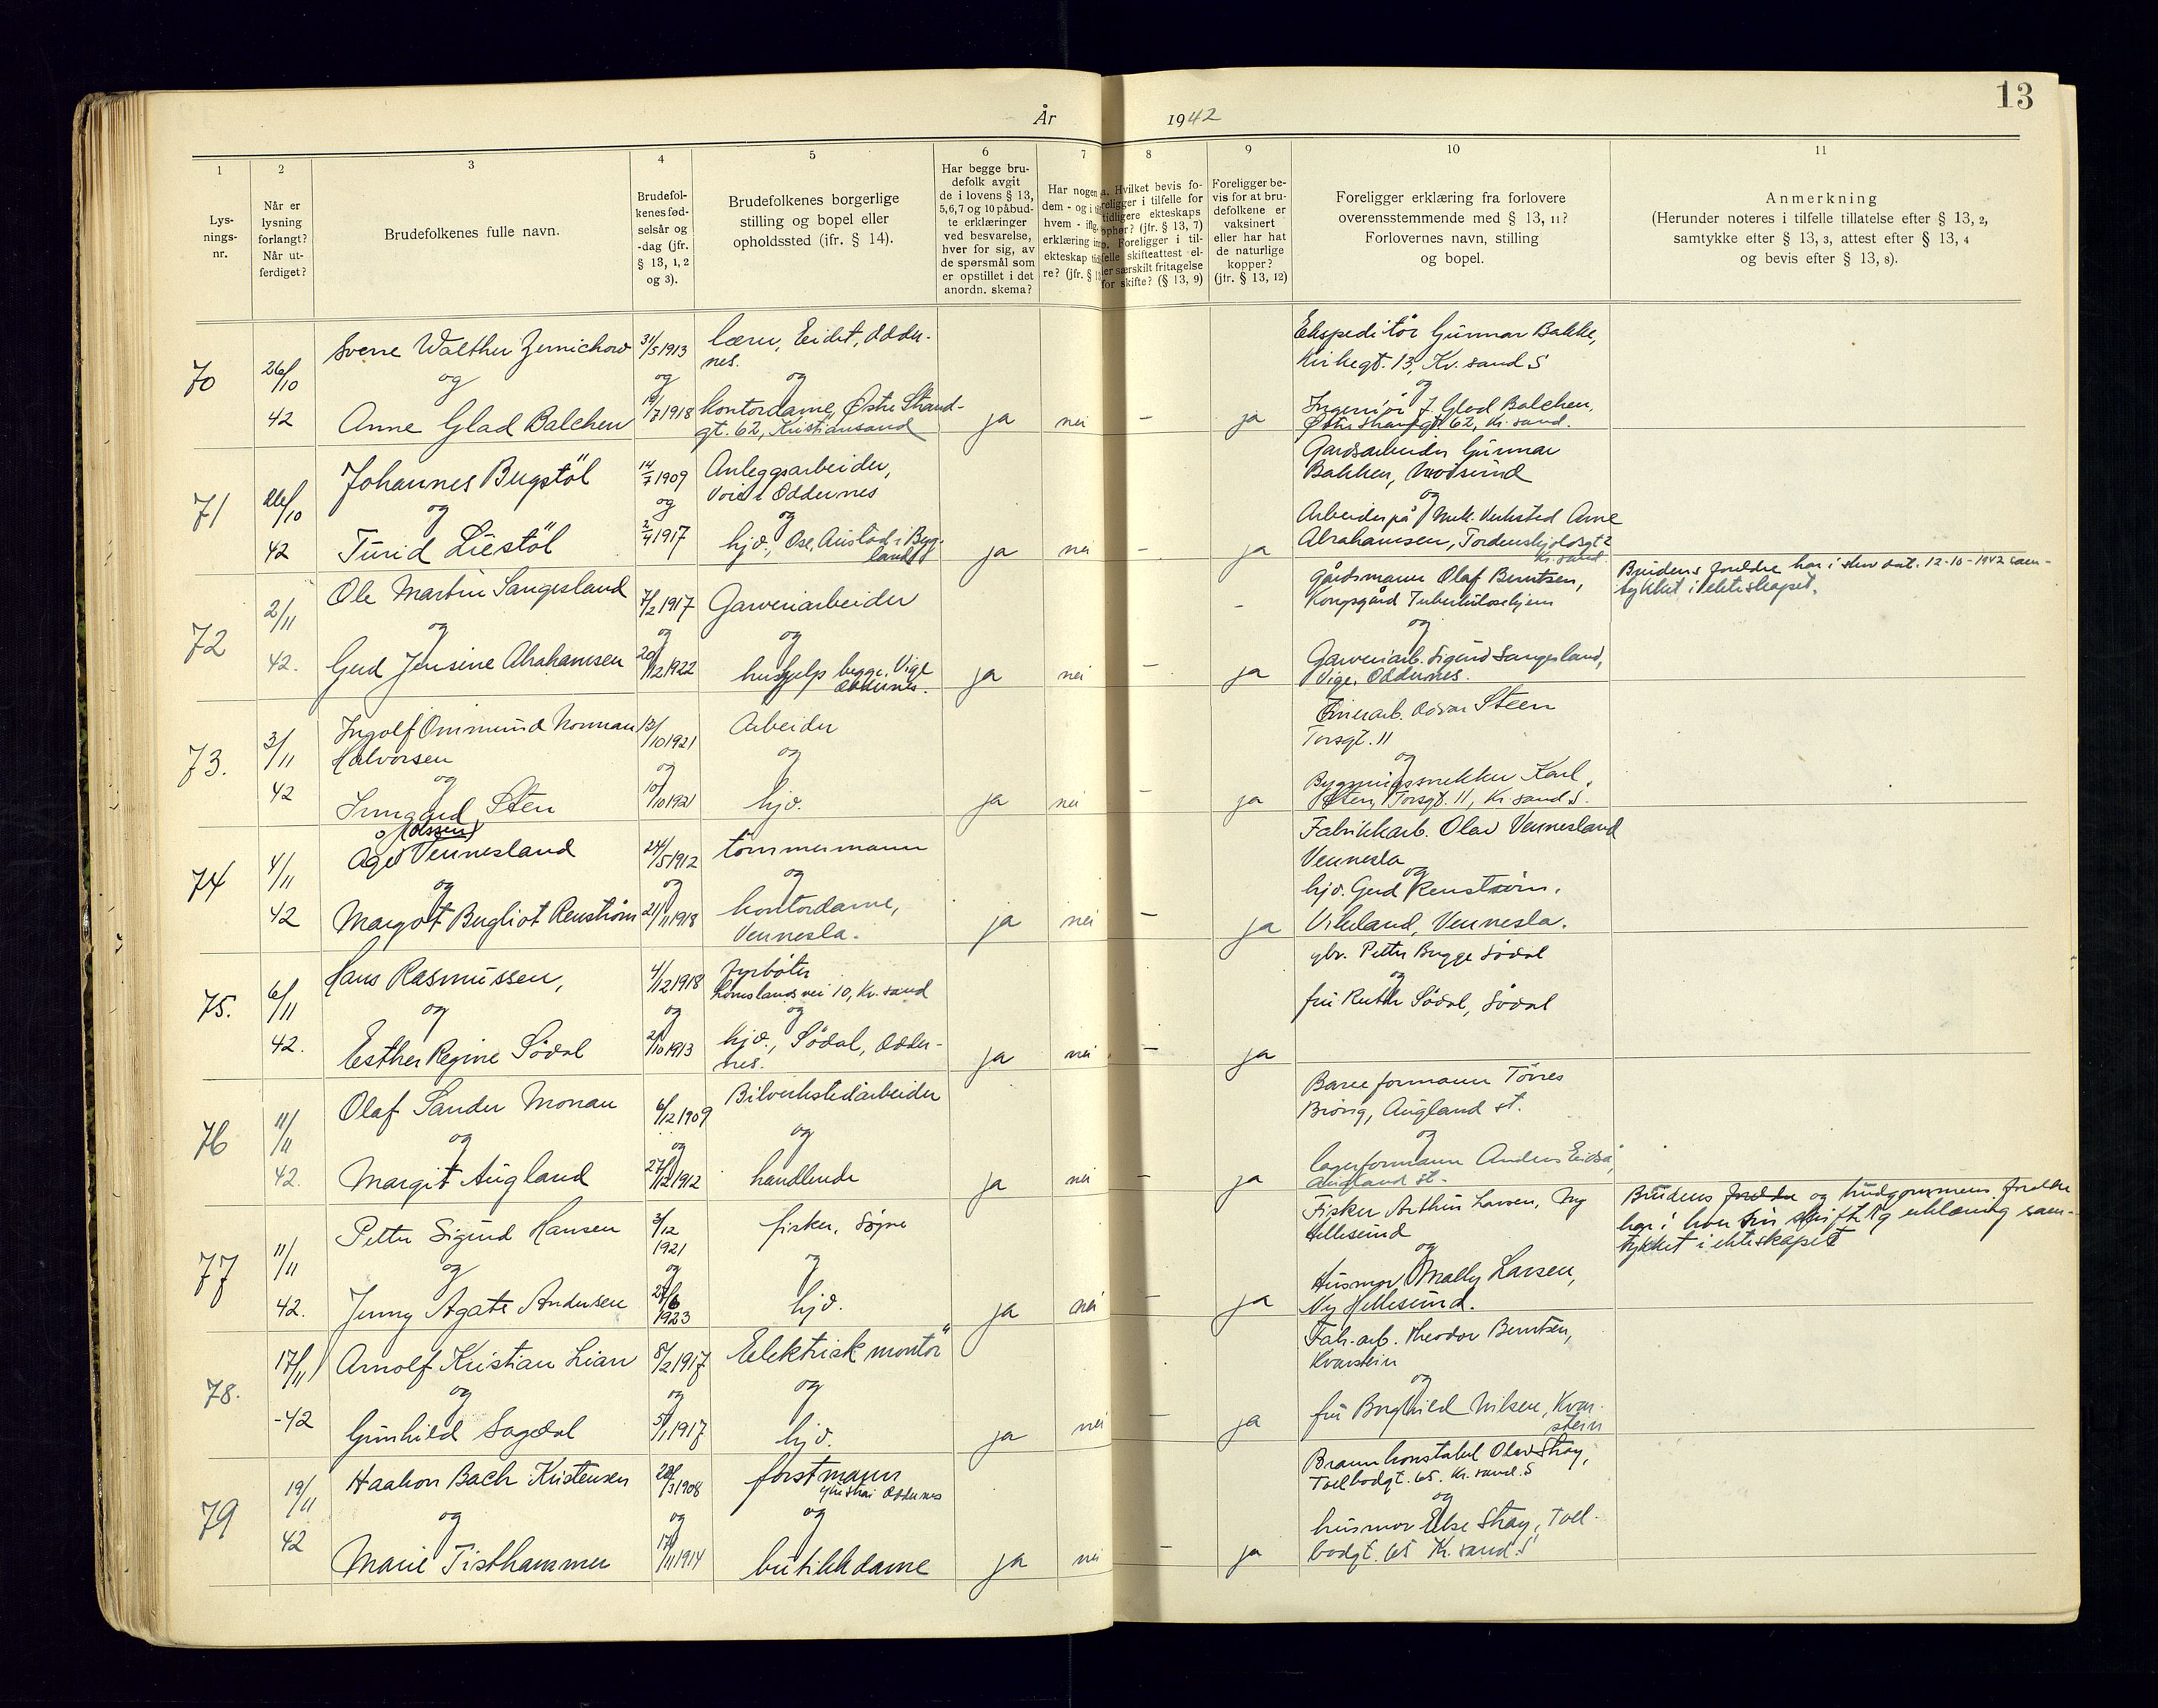 År 1942
13
1
2
3
4
5
6
7
8
9
10
11
Lys-
nings-
nr.
Når er
lysning
forlangt?
Når ut-
ferdiget?
Brudefolkenes fulle navn.
Brudefol-
kenes fød-
selsår og
-dag (jfr.
§ 13, 1, 2
og 3).
Brudefolkenes borgerlige
stilling og bopel eller
opholdssted (jfr. § 14).
Har begge bru-
defolk avgit
de i lovens § 13,
5, 6, 7 og 10 påbud-
te erklæringer
ved besvarelse,
hver for sig, av
de spørsmål som
er opstillet i det
anordn. skema?
Har nogen
dem - og i
hvem - ifl.
erklæring
ekteskap
re? (jfr. §
a. Hvilket bevis fo-
religger i tilfelle for
tidligere ekteskaps
ophør? (jfr. § 13, 7)
b. Foreligger i til-
felle skifteattest el-
ler særskilt fritagelse
for skifte? (§ 13, 9)
Foreligger be-
vis for at bru-
defolkene er
vaksinert
eller har hat
de naturlige
kopper?
(jfr. § 13, 12)
Foreligger erklæring fra forlovere
overensstemmende med § 13, 11?
Forlovernes navn, stilling
og bopel.
Anmerkning
(Herunder noteres i tilfelle tillatelse efter § 13, 2,
samtykke efter § 13, 3, attest efter § 13, 4
og bevis efter § 13, 8).
70
26/10
42
Sverre Walther Zernichow
og
Anne Glad Balchen
31/5 1913
og
/7 1918
lærer, Eidet, Odder-
nes.
og
kontordame, Østre Strand-
gt. 62, Kristiansand
ja
nei
–
ja
Ekspeditör Gunnar Bakke,
Kirkegt. 13, Kr. sand S
og
Ingeniör J. Glad Balchen,
Østre Strandgt. 62, Kr. sand.
71
26/10
42
Johannes Bugstöl
og
Turid Liestöl
14/7 1909
og
2/4 1917
Anleggsarbeider,
Voie i Oddernes
og
hjv., Ose, Austad i Byg-
land
ja
nei
–
ja
Gardsarbeider Gunnar
Bakken, Mosund
og
Arbeider på Mek. Verksted Arne
Abrahamsen, Tordenskjoldsgt 2
Kr. sand
72
2/11
42.
Ole Martin Sangesland
og
Gerd Jensine Abrahamsen
7/2 1917
og
20/12 1922
Garveriarbeider
og
hushjelp begge, Vige
Oddernes.
ja
nei
–
–
ja
Gårdsmann Olaf Berntsen,
Kongsgård Tuberkulosehjem
og
Garveriarb. Sigurd Sangesland,
Vige, Oddernes.
Brudens foreldre har i skr. dat. 12-10-1942 sam-
tykket i ekteskapet.
73.
3/11
42
Ingolf Ommund Norman
Halvorsen
og
Irmgard Sten
13/10 1921
og
10/10 1921
Arbeider
og
hjv.
ja
nei
–
ja
Finerarb. Odvar Steen
Torsgt. 11
og
Bygningssnekker Karl
Sten, Torsgt. 11, Kr sand S.
74
4/11
42
(Olssen)
Åge Vennesland
og
Margot Bergliot Renström
24/5 1912
og
21/11 1918
tömmermann
og
kontordame,
Vennesla.
ja
nei
–
ja
Fabrikkarb. Olav Vennesland
Vennesla
og
hjv. Gerd Renström.
Vikeland, Vennesla.
75.
6/11
42.
Hans Rasmussen,
og
Esther Regine Södal
4/12 1918
og
2/10 1913
fyrböter
Lömslandsvei 10, Kr. sand
og
hjv., Södal, Odder-
nes.
ja
nei
–
ja
gbr. Petter Bugge Södal
og
fru Ruth Södal, Södal
76
11/11
42.
Olaf Sander Monan
og
Margit Augland
6/12 1909
og
27/12 1912
Bilverkstedarbeider
og
handlende
ja
nei
–
ja
Baneformann Törres
Brövig, Augland st.
og
lagerformann Anders Eidså,
Augland st.
77
11/11
42.
Petter Sigurd Hansen
og
Jenny Agate Andersen
3/12
1921
og
27/6
1923
fisker, Søgne
og
hjv.
ja
nei
–
ja
Fisker Arthur Larsen, Ny
Hellesund
og
Husmor Mally Larsen,
Ny Hellesund.
Brudens foreldre og brudgommens foreldre
har i hver sin skriftlig erklæring sam-
tykket i ekteskapet
78.
17/11
-42
Arnolf Kristian Lian
og
Gunhild Sagedal
8/2 1917
og
5/1 1917
Elektrisk montör
og
hjv.
ja
nei
–
ja
Fab.arb. Theodor Berntsen,
Kvarstein
og
fru Borghild Nilsen, Kvar-
stein
79
19/11
42
Haakon Bach Kristensen
og
Marie Tisthammer
28/3 1908
og
17/11 1914
forstmann
Oddernes
og
butikkdame
ja
nei
–
ja
Brannkonstabel Olav Stray,
Tollbodgt. 65. Kr. sand. S
og
husmor Else Stray, Toll-
bodgt. 65 K. sand. S